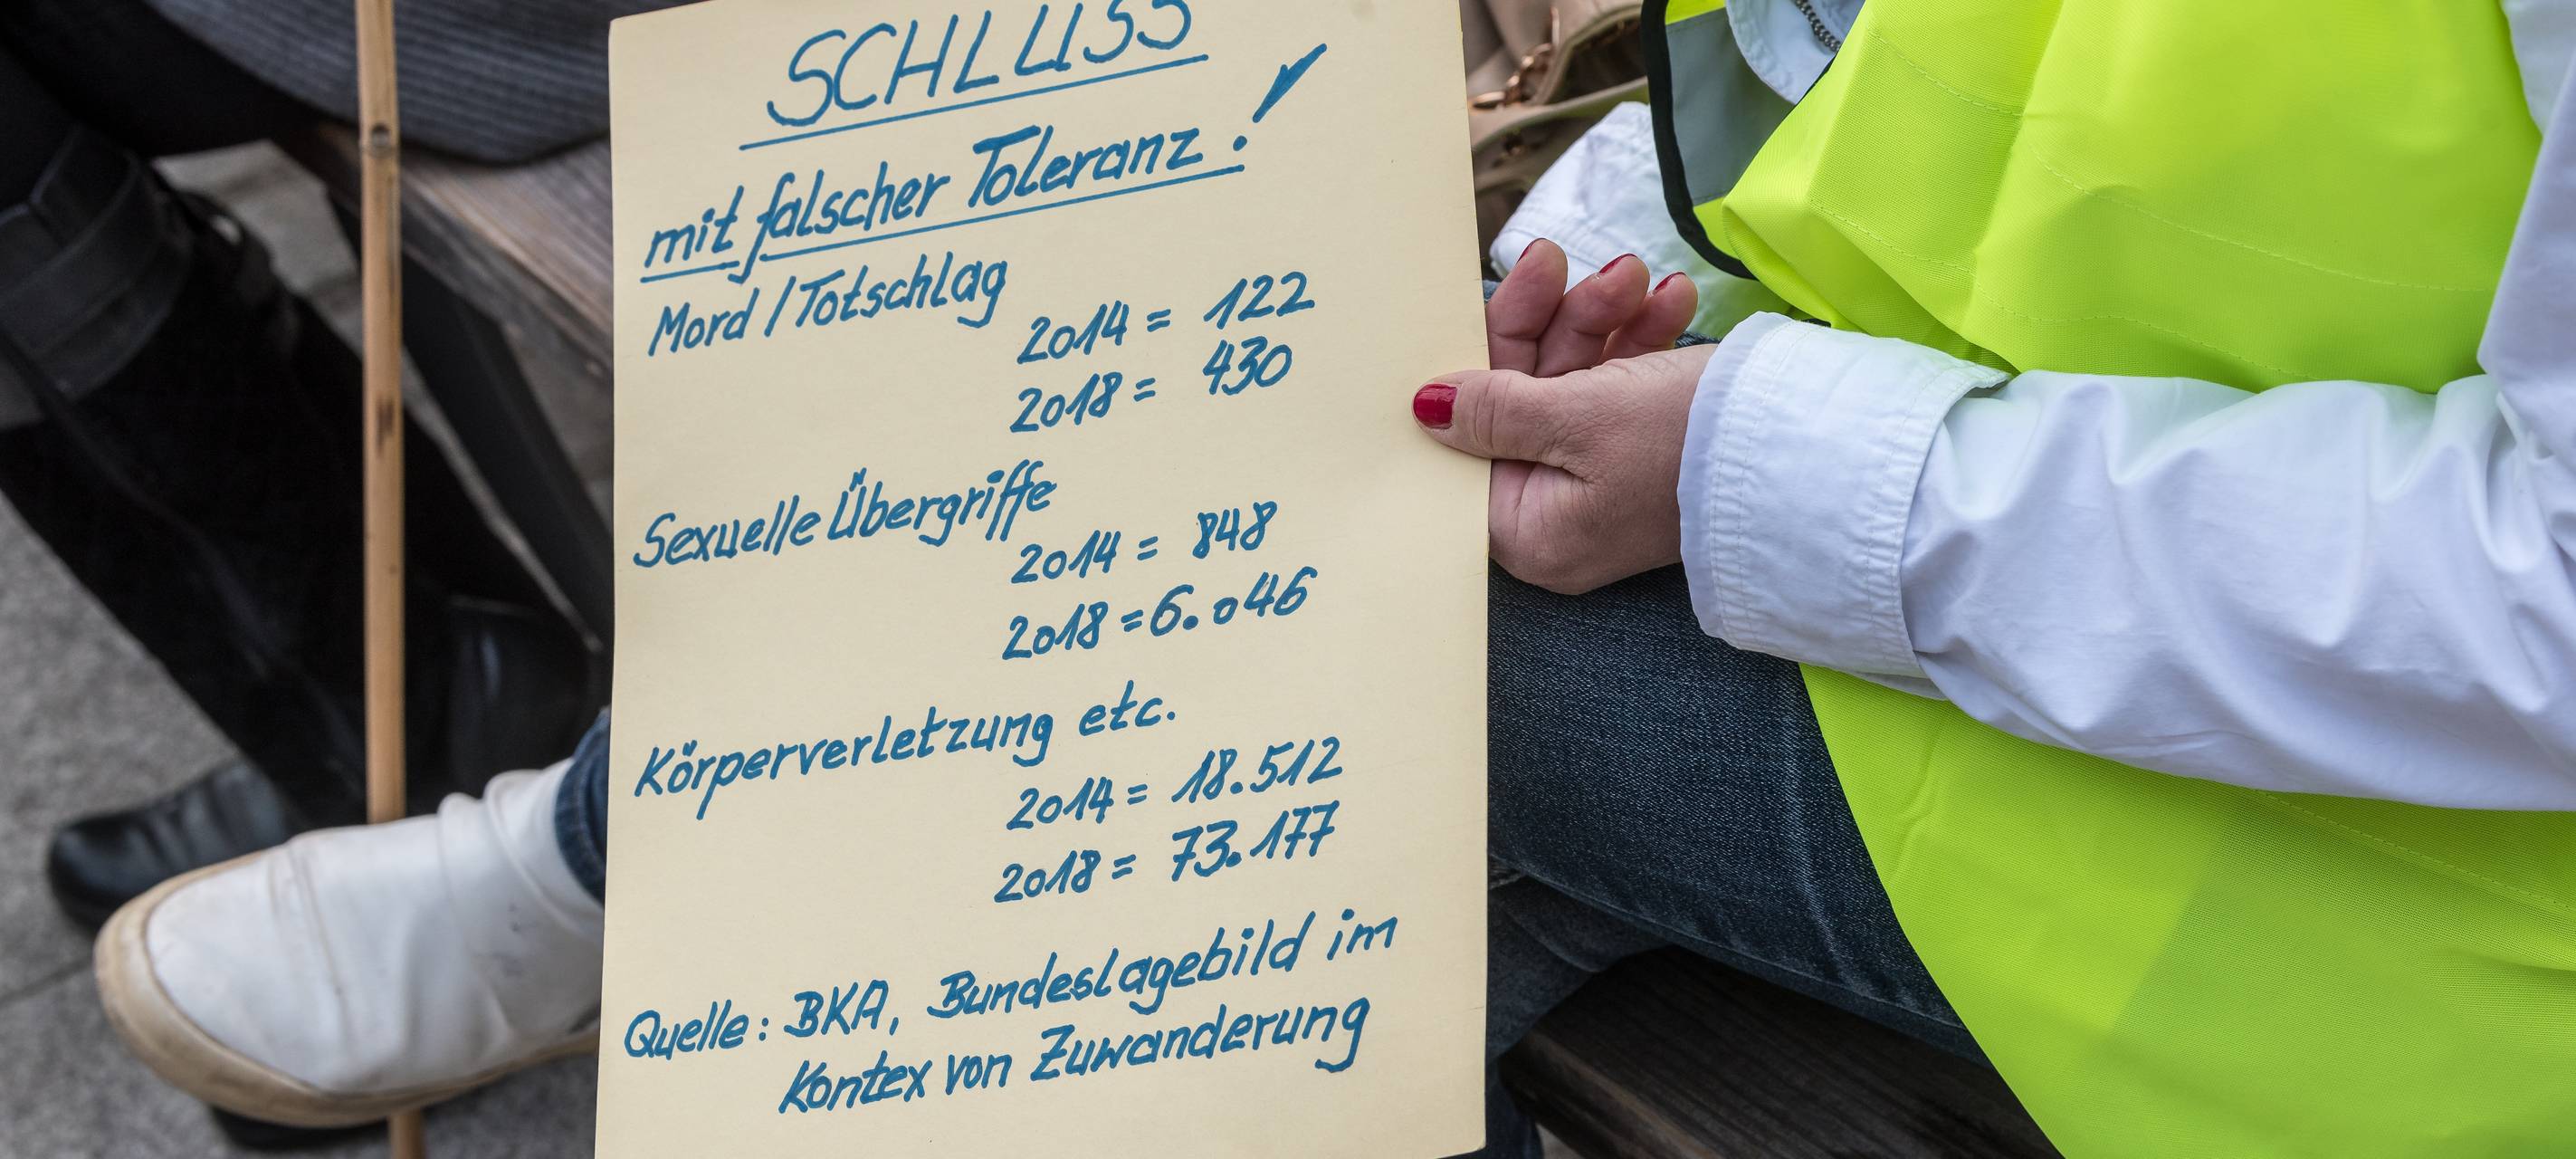 SCHLUSS
mit falscher Toleranz!
Mord / Totschlag
2014 = 122
2018 = 430
Sexuelle Übergriffe
2014 = 848
2018 = 6.046
Körperverletzung etc.
2014 = 18.512
2018 = 73.177
Quelle: BKA, Bundeslagebild im
Kontex von Zuwanderung